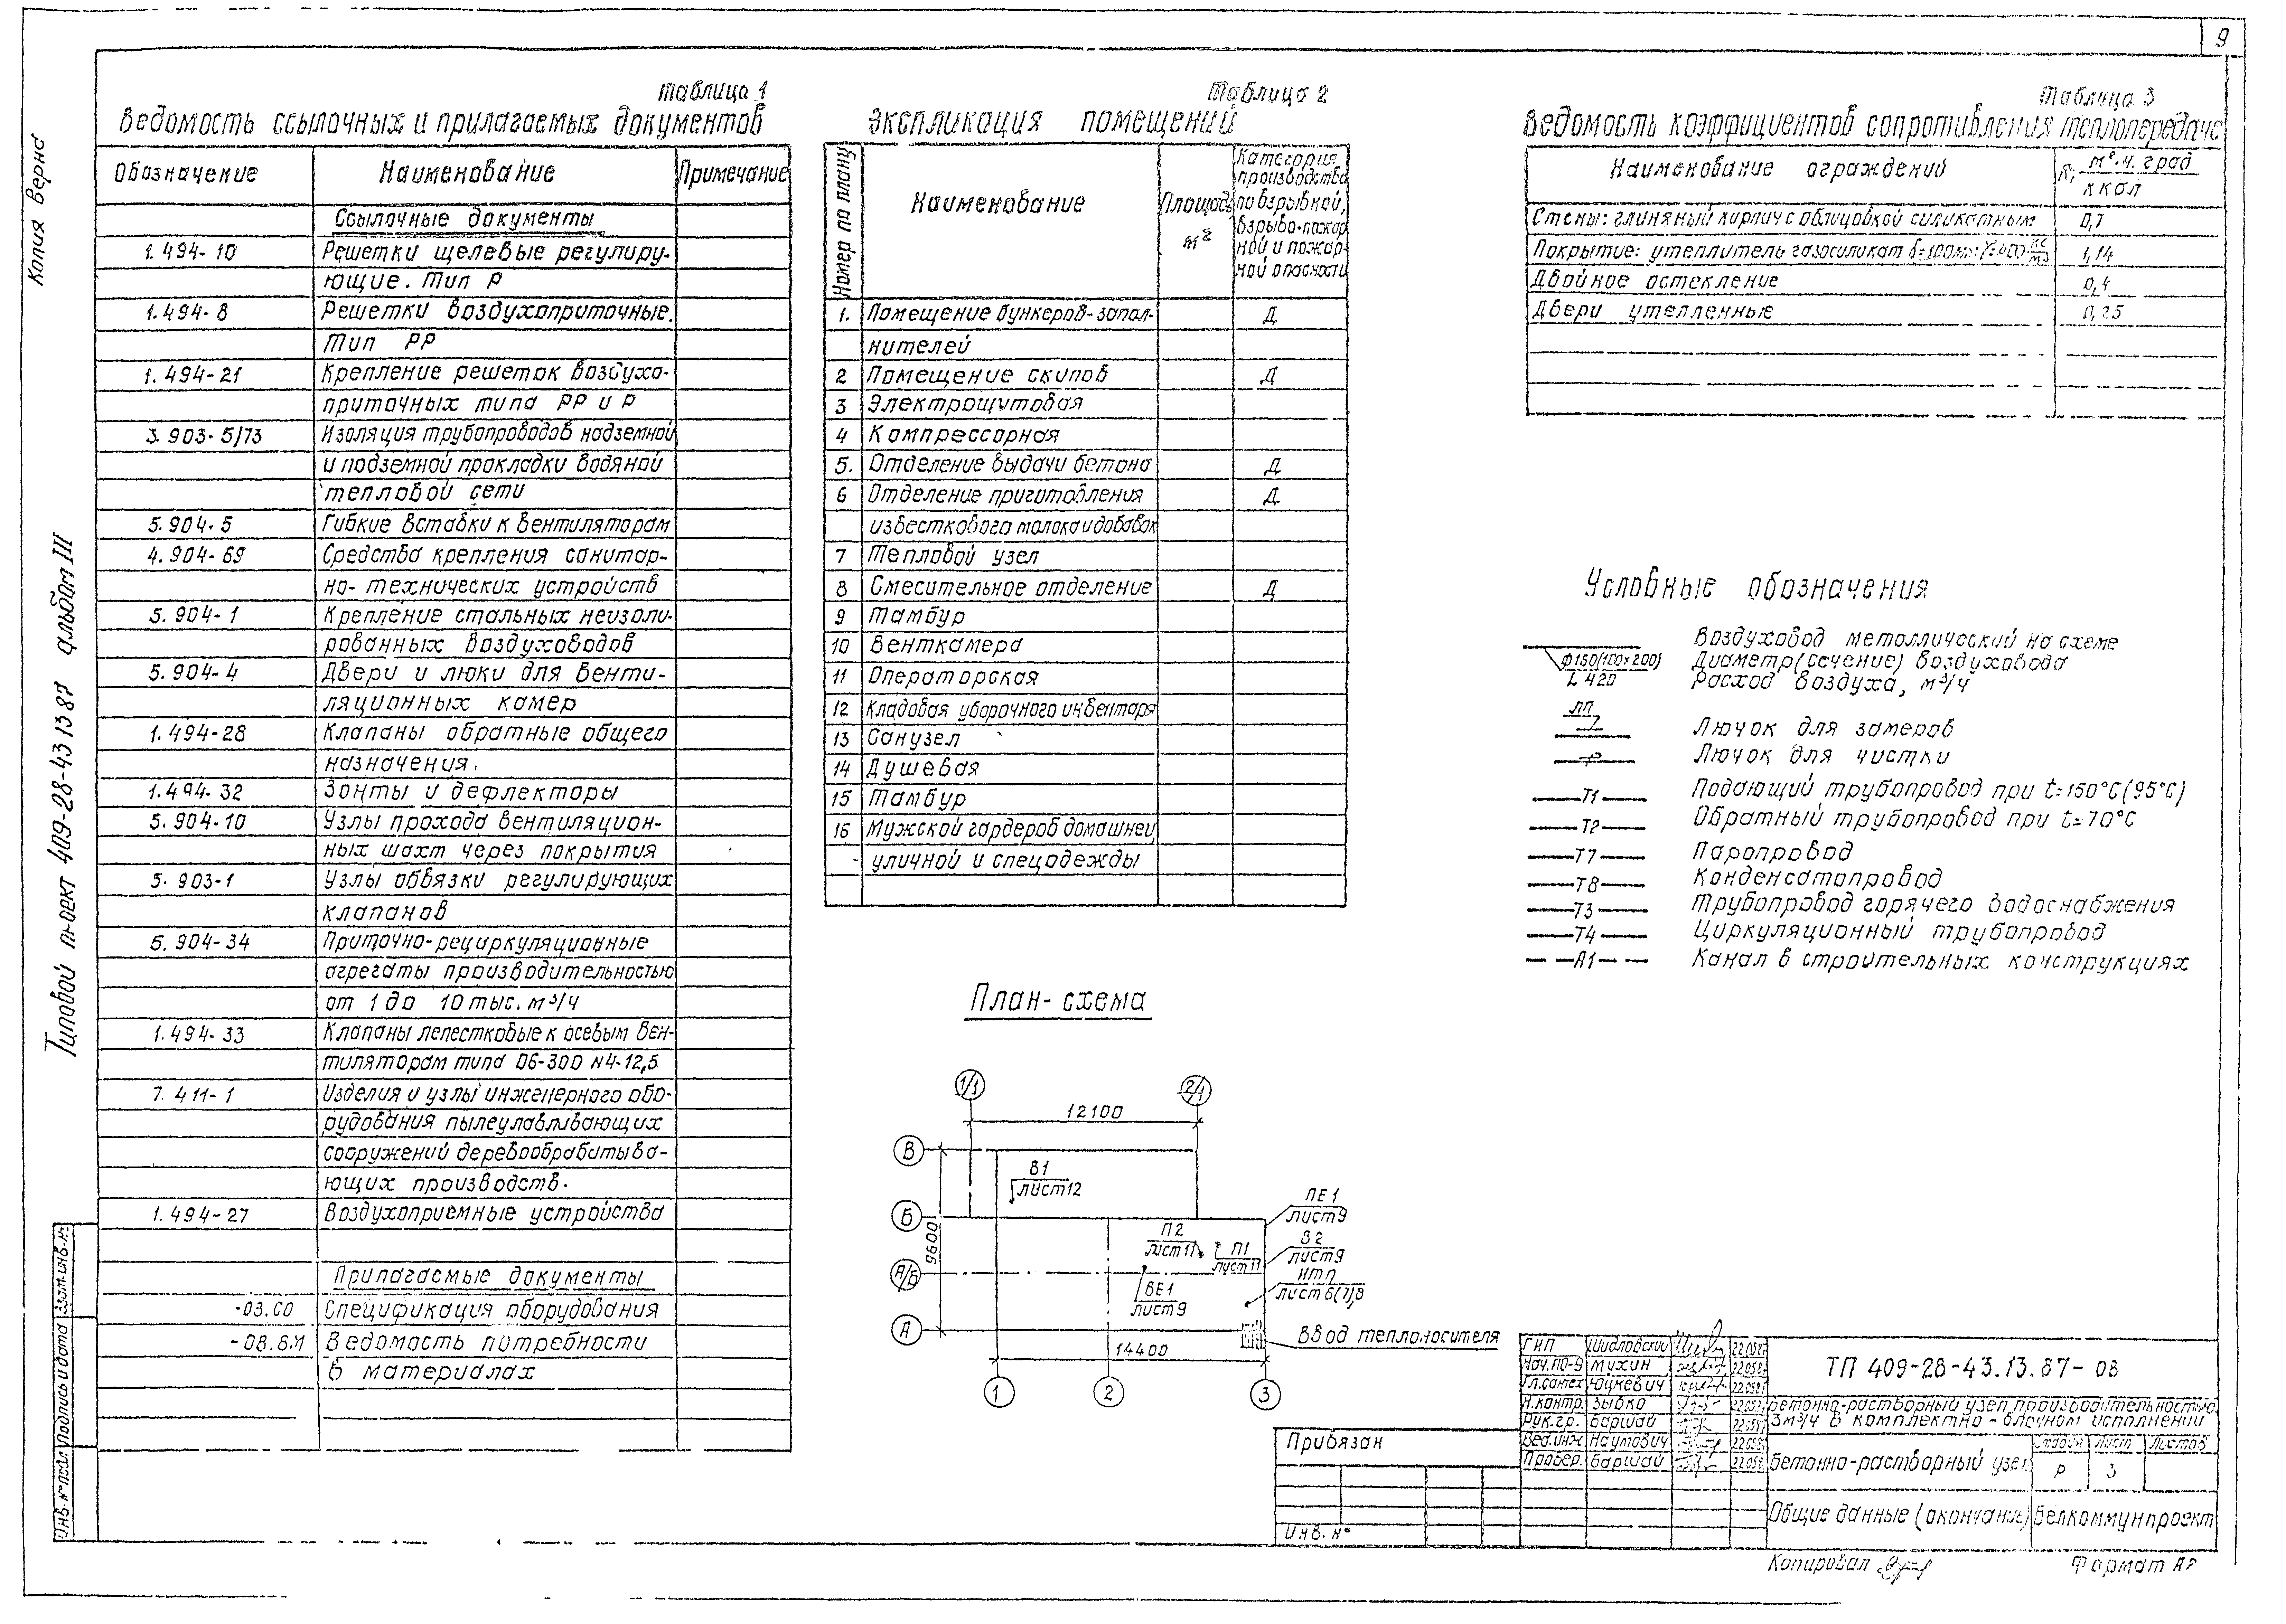 9
Копия верна
Типовой проект 409-28-43.13.87 альбом III
Таблица 1
Ведомость ссылочных и прилагаемых документов
Обозначение Наименование Примечание
Ссылочные документы
1.494-10 Решетки щелевые регулиру-
ющие. Тип Р
1.494-8 Решетки воздухоприточные.
Тип РР
1.494-21 Крепление решеток воздухо-
приточных типа РР и Р
3.903-5/73 Изоляция трубопроводов надземной
и подземной прокладки водяной
тепловой сети
5.904-5 Гибкие вставки к вентиляторам
4.904-69 Средства крепления санитар-
но-технических устройств
5.904-1 Крепление стальных неизоли-
рованных воздуховодов
5.904-4 Двери и люки для венти-
ляционных камер
1.494-28 Клапаны обратные общего
назначения.
1.494-32 Зонты и дефлекторы
5.904-10 Узлы прохода вентиляцион-
ных шахт через покрытия
5.903-1 Узлы обвязки регулирующих
клапанов
5.904-34 Приточно-рециркуляционные
агрегаты производительностью
от 1 до 10 тыс. м³/ч
1.494-33 Клапаны лепестковые к осевым вен-
тиляторам типа 06-300 №4-12,5
7.411-1 Изделия и узлы инженерного обо-
рудования пылеулавливающих
сооружений деревообрабатыва-
ющих производств.
1.494-27 Воздухоприемные устройства
Прилагаемые документы
-03.СО Спецификация оборудования
-08.ВМ Ведомость потребности
в материалах
Таблица 2
Экспликация помещений
Номер по плану
Наименование
Площадь
м²
Категория
производства
по взрывной,
взрыво-пожар
ной и пожар-
ной опасности
1. Помещение бункеров-запол- Д
нителей
2 Помещение скипов Д
3 Электрощитовая
4 Компрессорная
5. Отделение выдачи бетона Д
6 Отделение приготовления Д
известкового молока и добавок
7 Тепловой узел
8 Смесительное отделение Д
9 Тамбур
10 Венткамера
11 Операторская
12 Кладовая уборочного инвентаря
13 Санузел
14 Душевая
15 Тамбур
16 Мужской гардероб домашней,
уличной и спецодежды
Таблица 3
Ведомость коэффициентов сопротивления теплопередаче
Наименование ограждений R, м²·ч·град
ккал
Стены: глиняный кирпич с облицовкой силикатным 0,7
Покрытие: утеплитель газосиликат δ=100мм γ=400 кг/м³ 1,14
Двойное остекление 0,4
Двери утепленные 0,25
Условные обозначения
Воздуховод металлический на схеме
ф150(100×200) Диаметр (сечение) воздуховода
L 420 Расход воздуха, м³/ч
ЛП
Лючок для замеров
Лючок для чистки
Т1 Подающий трубопровод при t=150°С (95°С)
Т2 Обратный трубопровод при t=70°С
Т7 Паропровод
Т8 Конденсатопровод
Т3 Трубопровод горячего водоснабжения
Т4 Циркуляционный трубопровод
А1 Канал в строительных конструкциях
План-схема
1/1 2/1
12100
В
В1
лист 12
Б
9600
ПЕ1
лист 9
П2
лист 11
П1
лист 11
В2
лист 9
А/Б
ИТП
лист 6(7),8
ВЕ1
лист 9
А
Ввод теплоносителя
14400
1 2 3
Привязан
Инв. №
ГИП Шидловский 22.05.87
Нач. ПО-9 Мухин
Гл. сантех Юцкевич
Н.контр. Зыбко
Рук.гр. Баршай
Вед.инж Наумович
Провер. Баршай
ТП 409-28-43.13.87-08
Бетонно-растворный узел производительностью
3м³/ч в комплектно-блочном исполнении
Бетонно-растворный узел
Стадия Лист Листов
Р 3
Общие данные (окончание)
Белкоммунпроект
Копировал
Формат А2
Взам. инв. №
Подпись и дата
Инв. № подл.